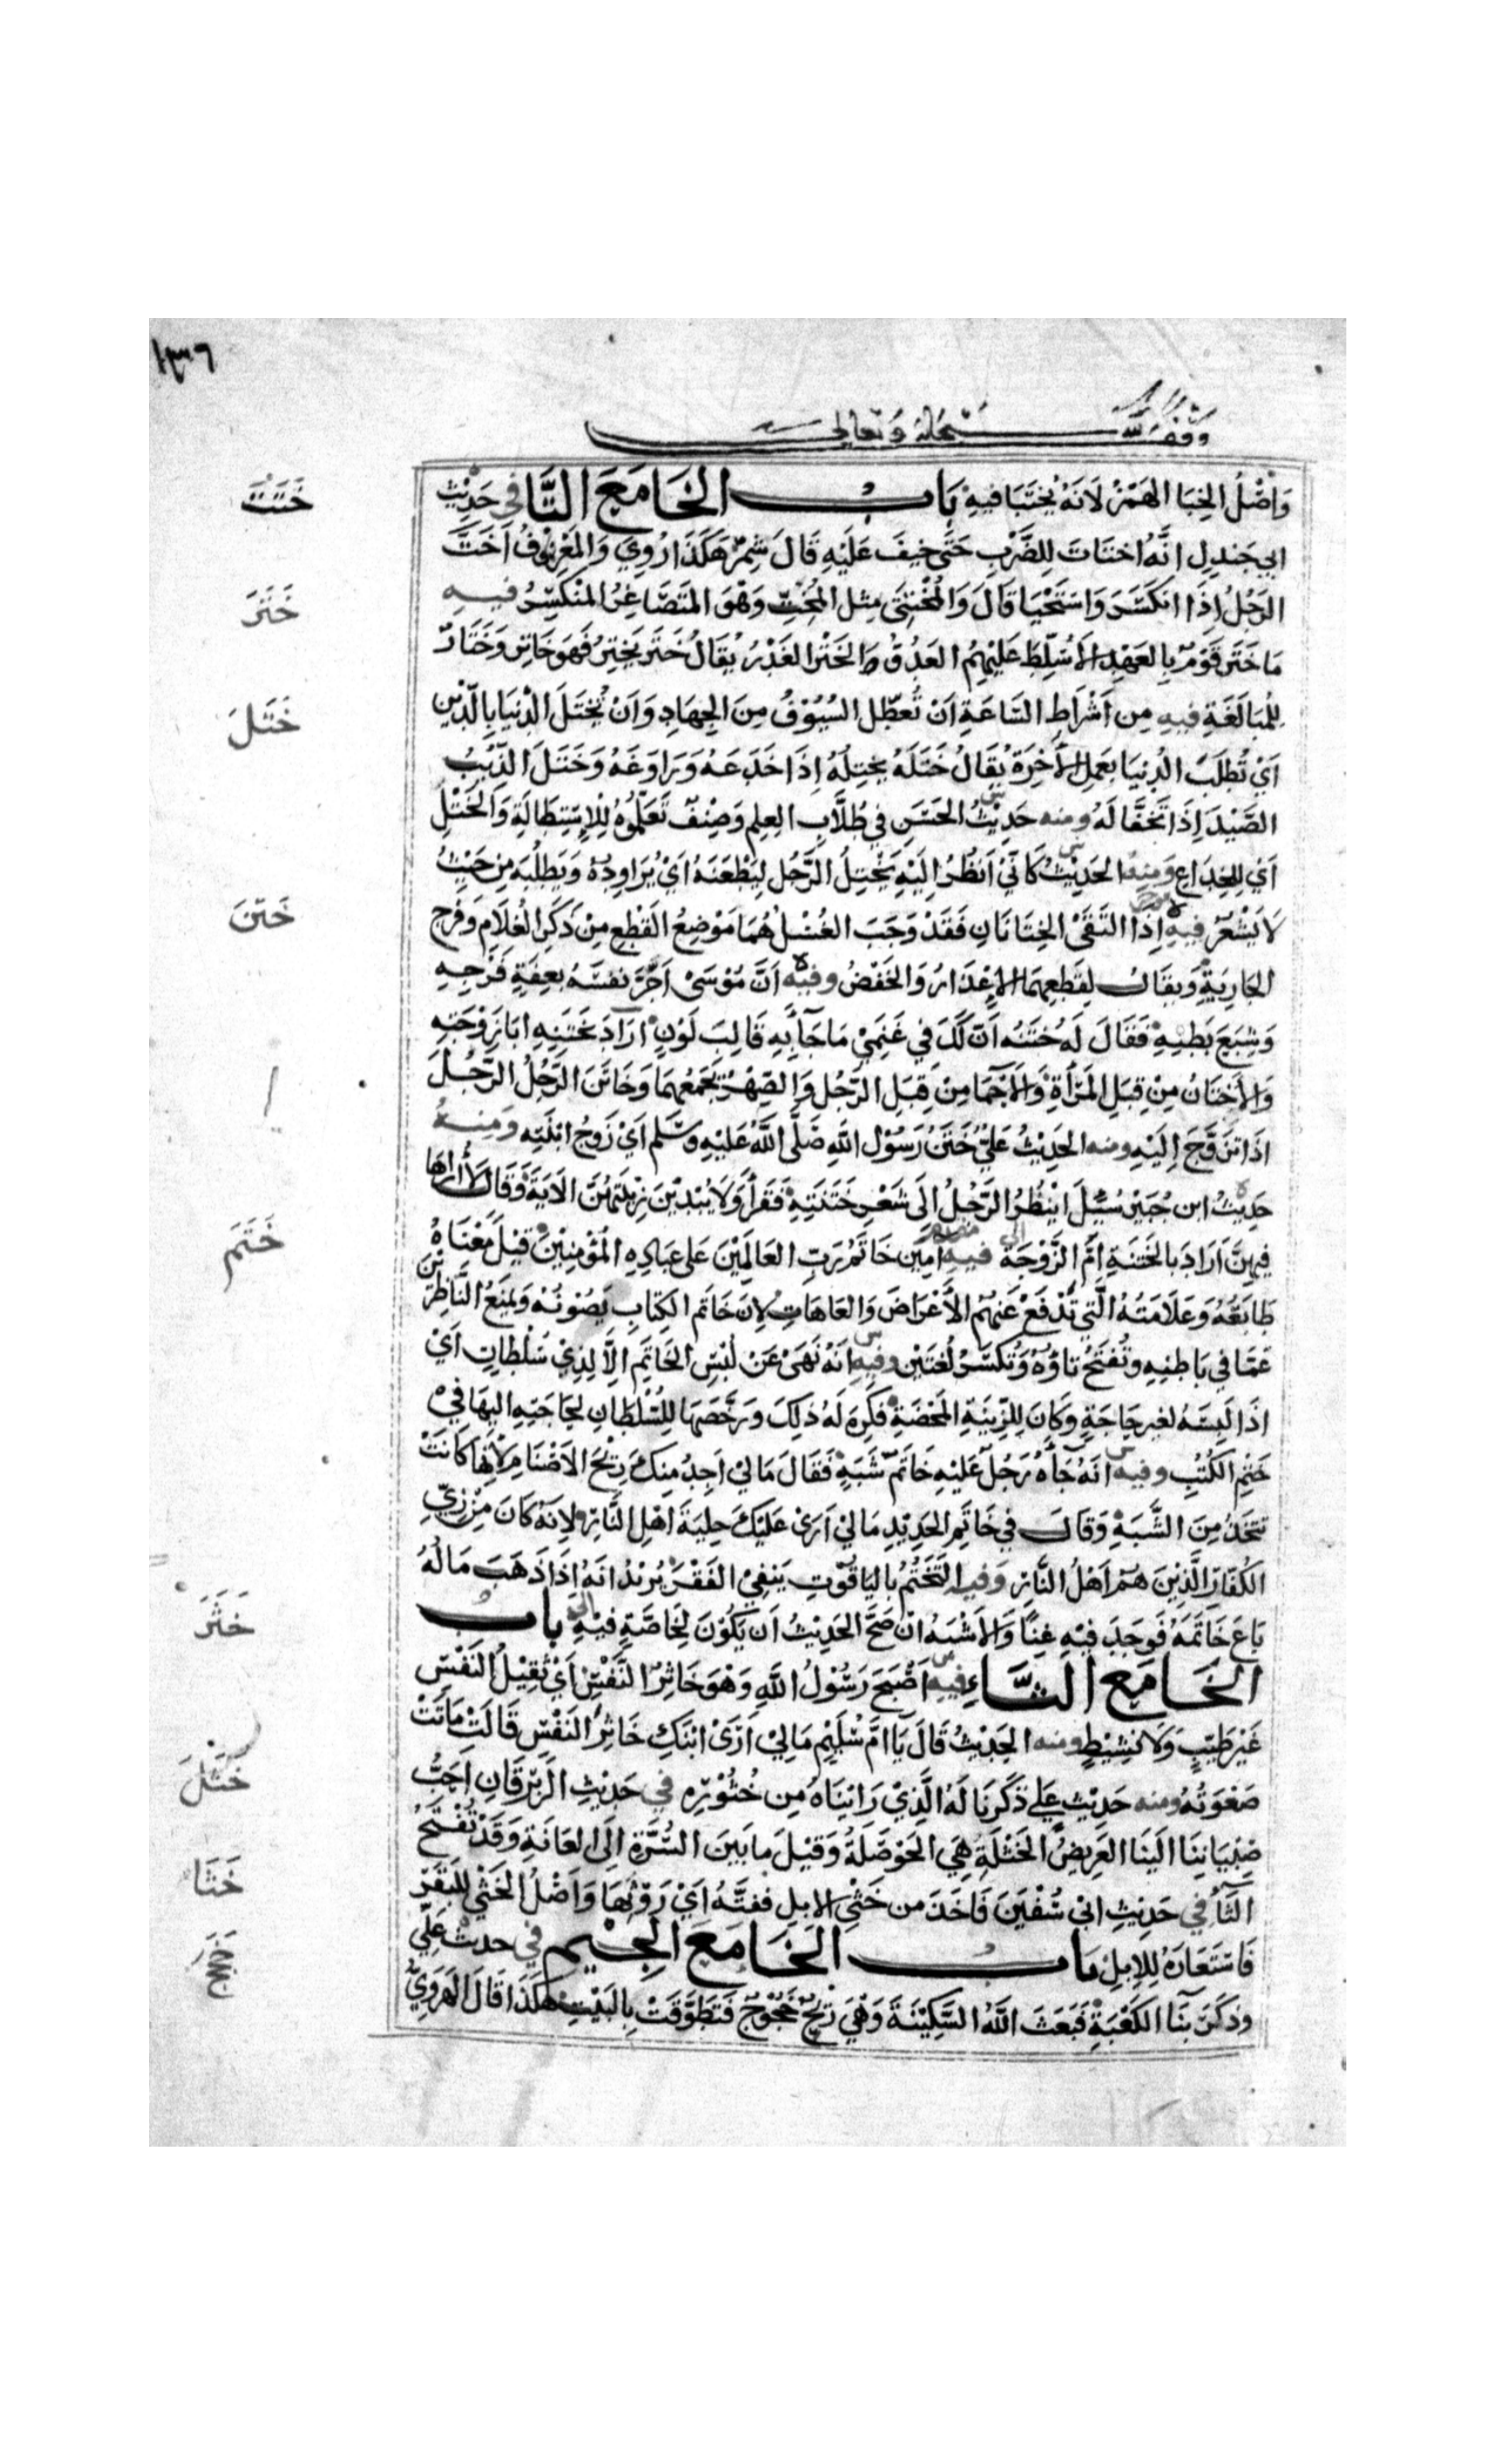 ١٣٦
وقف لله سبحانه وتعالى
وَاَصْلُ الخِبَا الهَمْزُ لَانَهُ يُختَبَا فيهِ بَابُ الخَا مَعَ التَّا في حَدِيْثِ
خَتَتَ
ابي جَندلٍ انَّهُ اختَاتَ لِلضَّرْبِ حَتَّى خِيفَ عَلَيْهِ قَالَ شِمْرٌ هَكَذَا رُوِيَ وَالمَعْرُوفُ اَخَتَّ
الرَجُلُ اِذَا انكَسَرَ وَاسْتَحْيَا قَالَ وَالمُخْتَتِي مِثلُ المُخِتِّ وَهُوَ المُتَصَاغِرُ المُنْكَسِرُ فيهِ
خَتَرَ
مَا خَتَرَ قَوْمٌ بِالعَهْدِ الاَّ سُلِّطَ عَلَيْهِمُ العَدُوُّ الخَتْرُ الغَدْرُ يُقَالُ خَتَرَ يَختِرُ فَهُوَ خَاتِرٌ وَخَتَّارٌ
لِلْمُبَالَغَةِ فيهِ مِن اَشْرَاطِ السَّاعَةِ اَنْ تُعَطَّلَ السُيُوْفُ مِنَ الجِهَادِ وَاَنْ تُخْتَلَ الدُّنيَا بِالدِّيْنِ
خَتَلَ
اَيْ تُطْلَبَ الدُنِيَا بِعَمَلِ الآخِرَةِ يُقَالُ خَتَلَهُ يَختِلُهُ اِذَا خَدَعَهُ وَرَاوَغَهُ وَخَتَلَ الذِّئْبُ
الصَّيْدَ اِذَا تَخَفَّا لَهُ ومنه حَدِيْثُ الحَسَنِ في طُلَّابِ العِلِم وَصِنْفٌ تَعَلَّمُوهُ لِلْاِسْتِطَالَةِ وَالخَتْلِ
اَي الخِدَاعِ وَمِنهُ الحَدِيْثُ كَاَنِّيْ اَنظُرُ اِلَيْهِ يَخْتِلُ الرَّجُلَ لِيَطْعَنَهُ اَيْ يُرَاوِدُهُ وَيَطلُبُه مِن حَيْثُ
لاَ يَشْعُرُ فيهِ اِذَا التَقَى الخِتَانَانِ فَقَدْ وَجَبَ الغُسْلُ هُمَا مَوْضِعُ القَطْعِ مِنْ ذَكَرِ الغُلَامِ وَفَرْجِ
خَتَنَ
الجَارِيَةِ وَيقَالُ لِقَطعِهِمَا الاِعْذَارُ وَالخَفْضُ وفيه اَنَّ مُوْسَى اجَّرَ نَفسَهُ بِعِفَّةِ فَرْجِهِ
وَشِبَعِ بَطْنِهِ فَقَالَ لَهُ خَتَنُهُ اَنَّ لَكَ في غَنَمِيْ مَا جَآءَتْ بِهِ قَالِبَ لَوْنٍ ارَادَ بِخَتَنِهِ ابَا زَوْجَتِهِ
وَالاَخْتَانُ مِنْ قِبَلِ المَرْأَةِ وَالاَحْمَا مِنْ قِبَلِ الرَّجُلِ وَالصِّهْرُ يَجْمَعُهُمَا وَخَاتَنَ الرَّجُلُ الرَّجُلَ
اذَا تزَوَّجَ اِلَيْهِ ومنه الحَدِيْثُ عَلِيٌّ خَتَنُ رَسُوْلِ اللهِ صَلَّى اللهُ عَلَيْهِ وسَلَّم اَيْ زَوجُ ابنَتِهِ وَمِنهُ
حَدِيْثُ ابن جُبَيْرٍ سُئِلَ ايَنْظُرُ الرَّجُلُ اِلَى شَعْرِ خَتَنَتِهِ فَقَرَأَ وَلَا يُبْدِيْنَ زِيْنَتَهُنَّ الآيَةَ وَقَالَ لا أَرَاهَا
فِيهِنَّ اَرَادَ بِالخَتَنَةِ اُمَّ الزَّوْجَةِ فيهِ آمِين خَاتَمُ رَبِّ العَالَمِيْنَ عَلى عِبَادِهِ المُؤمِنِيْنَ قِيْلَ مَعْنَاهُ
خَتَمَ
طَابَعُهُ وَعَلَامَتُهُ الَّتِي تَدْفَعُ عَنهُمُ الأعْرَاضَ وَالعَاهَاتِ لاِنَ خَاتَم الكِتَابِ يَصُونُهُ وَيَمنَعُ النَّاظِرِيْنَ
عَمَّا في بَاطِنِهِ وتُفتَحُ تاؤُهُ وَتُكسَرُ لُغَتَيْن وفيهِ انَهُ نَهَى عَنْ لُبْسِ الخَاتَمِ الاَّ لِذِيْ سُلْطَانٍ اَيْ
اذَا لَبِسَهُ لغيرِ حَاجَةٍ وَكَانَ لِلزِّينَةِ المَحْضَةِ فَكُرِهَ لَهُ ذلِكَ وَرَخَّصَهَا لِلسُّلْطَانِ لِحَاجَتِهِ اليهَا فيْ
خَتْمِ الكُتُبِ وفيه انَهُ جَآءَهُ رَجُلٌ عَلَيْهِ خَاتَمُ شَبَهٍ فَقَالَ مَا لِيْ اَجِدُ مِنكَ رِيْحَ الاَصْنَامِ لأَنهَا كَانَتْ
تتخَذُ مِنَ الشَّبَهِ وَقَالَ في خَاتَمِ الحَدِيْدِ مَا لِيْ اَرَى عَلَيْكَ حِليَةَ اهْلِ النَّارِ لِانَهُ كَانَ مِنْ زِيِّ
الكُفَّارِ الَّذِيْنَ هُمْ اَهْلُ النَّارِ وَفيه التَّخَتُّمُ بِاليَاقُوْتِ يَنفِيْ الفَقْرَ يُرِيْدُ انَهُ اذَا ذَهَبَ مَالُهُ
بَاعَ خَاتَمَهُ فَوَجَدَ فِيْهِ غِنًا وَالاَشْبَهُ انْ صَحَّ الحَدِيْثُ اَن يَكُوْنَ لِخَاصَّةٍ فيْهِ بابُ
خَثَرَ
الخَا مَعَ الثَّاءِ فيهِ اَصْبَحَ رَسُوْلُ اللهِ وَهُوَ خَاثِرُ النَّفْسِ اَيْ ثَقِيْلُ النَفْسِ
غَيْرَ طَيّبٍ وَلَا نشِيْطٍ ومنه الحَدِيْثُ قَالَ يَا امَّ سُلَيْمٍ مَا لِيْ اَرَى ابْنَكِ خَاثِرَ النَفْسِ قَالَتْ مَاتَتْ
صَعْوَتُهُ ومنه حَدِيْث عَلي ذَكَرنَا لَهُ الَّذِيْ رَايْنَاهُ مِن خُثُوْرِهِ في حَدِيْثِ الزِبْرِقَانِ احَبُّ
خَثَلَ
صِبْيَانِنَا الَينَا العَرِيضُ الخَثْلَةِ هِيَ الحَوْصَلَةُ وَقِيْلَ مَا بَينَ السُّرَّةِ اِلَى العَانَةِ وَقَدْ تُفْتَحُ
الثَّآءُ في حَدِيْثِ ابيْ سُفْيَنَ فَاخَذَ من خَثْيِ الابلِ ففتَّهُ اَيْ رَوْثِهَا وَاَصْلُ الخَثْيِ لِلبَقَرِ
خَثَا
فَاسْتَعَارَهُ لِلابِلِ بابُ الخَا مَعَ الجِيْمِ في حدث عَلِيّ
خَجَجَ
وذكَرَ بنَآ الكَعْبَةِ فَبَعَثَ اللهُ السَّكِيْنَةَ وَهْيَ رِيْحٌ خَجُوْجٌ فَتَطَوَّقَتْ بِالبَيْتِ هٰكَذَا قَالَ الهَرَوِيُّ